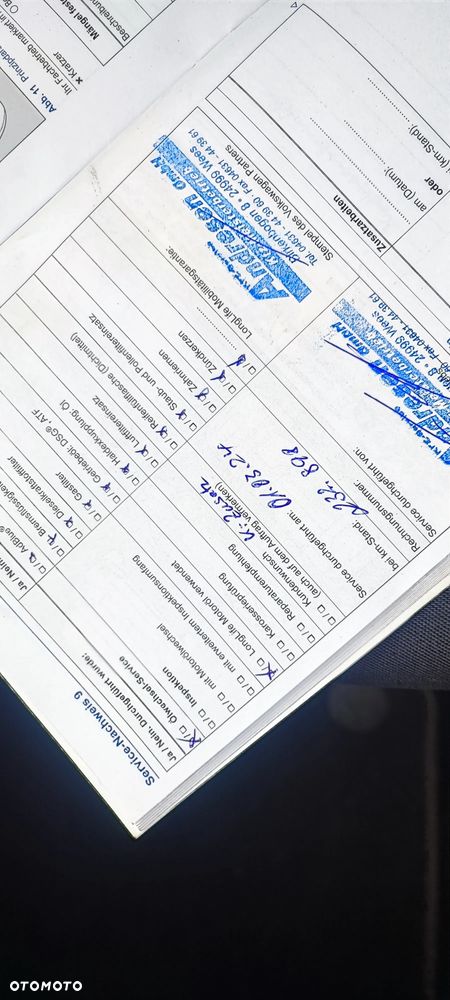 Service-Nachweis 9
Ja / Nein, Durchgeführt wurde:
Ölwechsel-Service
Inspektion
mit Motorölwechsel
mit erweitertem Inspektionsumfang
LongLife Motoröl verwendet
Karosserieprüfung
Reparaturempfehlung
Kundenwunsch
(auch auf dem Auftrag vermerken)
Service durchgeführt am: 01.03.24
bei km-Stand: 232.898
Rechnungsnummer:
Service durchgeführt von:
Ja / Nein
AdBlue®
Bremsflüssigkeit
Dieselkraftstofffilter
Gasfilter
Getriebeöl, DSG®, ATF
Haldexkupplung, Öl
Luftfiltereinsatz
Reifenfüllflasche (Dichtmittel)
Staub- und Pollenfiltereinsatz
Zahnriemen
Zündkerzen
LongLife Mobilitätsgarantie:
Andresen GmbH
Kfz-Meisterbetrieb
Birkenbogen 8 • 24999 Wees
Tel. 04631 - 44 39 60 Fax 04631 - 44 39 61
Stempel des Volkswagen Partners
Zusatzarbeiten
am (Datum):
oder
(km-Stand):
GmbH
24999 Wees
Fax 04631 - 44 39 61
Abb. 11
x Kratzer
Ihr Fachbetrieb markiert in
Beschreibung
OTOMOTO